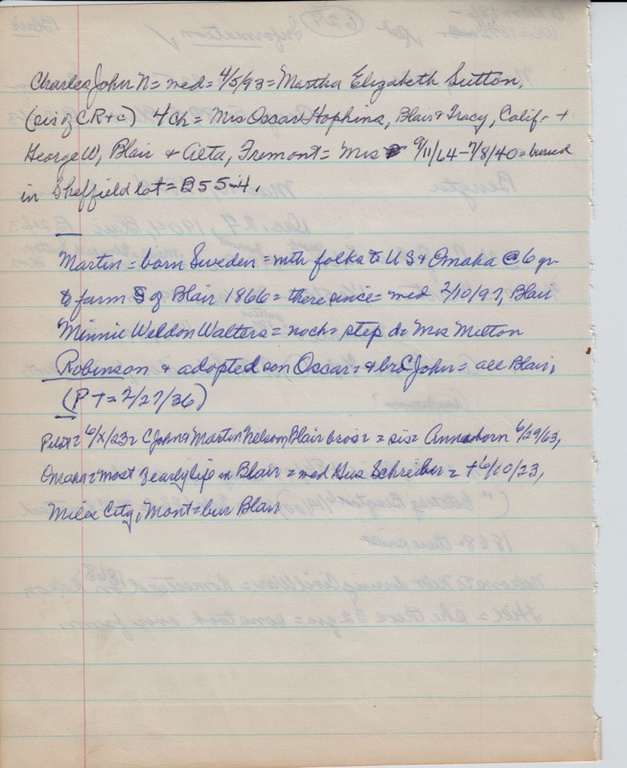 Charles John N = med = 4/5/93 = Martha Elizabeth Sutton,
(sis of CR+c) 4 ch = Mrs Oscar Hopkins, Blair + Tracy, Calif. +
George W, Blair + Alta, Fremont = Mrs 9/11/64 - 7/8/40 = buried
in Sheffield lot = 255-4.
Martin = born Sweden = with folks to US + Omaha @ 6 yr
to farm S of Blair 1866 = there since = med 2/10/97, Blair
Minnie Weldon Walters = no ch = step d = Mrs Milton
Robinson + adopted son Oscar = + bro C John = all Blair,
(PT = 2/27/36)
Pilot = 6/X/23 = C John + Martin Nelson, Blair bros = sis = Anna born 6/29/63,
Omaha = most early life in Blair = med Gus Schreiber = + 6/10/23,
Miles City, Mont = bur Blair